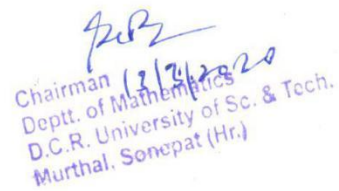 Chairman 12/3/2020
Deptt. of Mathematics
D.C.R. University of Sc. & Tech.
Murthal, Sonepat (Hr.)